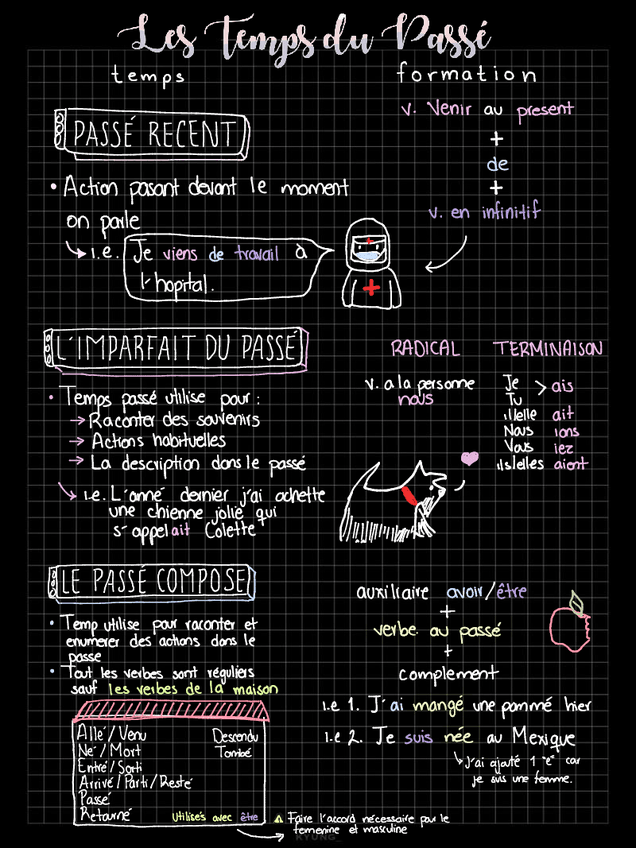 Les Temps du Passé
temps
formation
PASSÉ RECENT
• Action pasant devant le moment
on parle
i.e. Je viens de travail à
l'hopital.
v. Venir au present
+
de
+
v. en infinitif
L'IMPARFAIT DU PASSÉ
• Temps passé utilise pour:
→ Raconter des souvenirs
→ Actions habituelles
→ La description dans le passé
i.e. L'anné dernier j'ai achette
une chienne jolie qui
s'appelait Colette
RADICAL
v. a la personne
nous
TERMINAISON
Je > ais
Tu
il/elle ait
Nous ions
Vous iez
ils/elles aient
LE PASSÉ COMPOSE
• Temp utilise pour raconter et
enumerer des actions dans le
passe
• Tout les verbes sont réguliers
sauf les verbes de la maison
Allé / Venu Descendu
Né / Mort Tombé
Entré / Sorti
Arrivé / Parti / Resté
Passé
Retourné Utilisés avec être
⚠ Faire l'accord nécessaire par le
femenine et masculine
auxiliaire avoir/être
+
verbe au passé
+
complement
i.e 1. J'ai mangé une pommé hier
i.e 2. Je suis née au Mexique
J'ai ajouté 1 "e" car
je suis une femme.